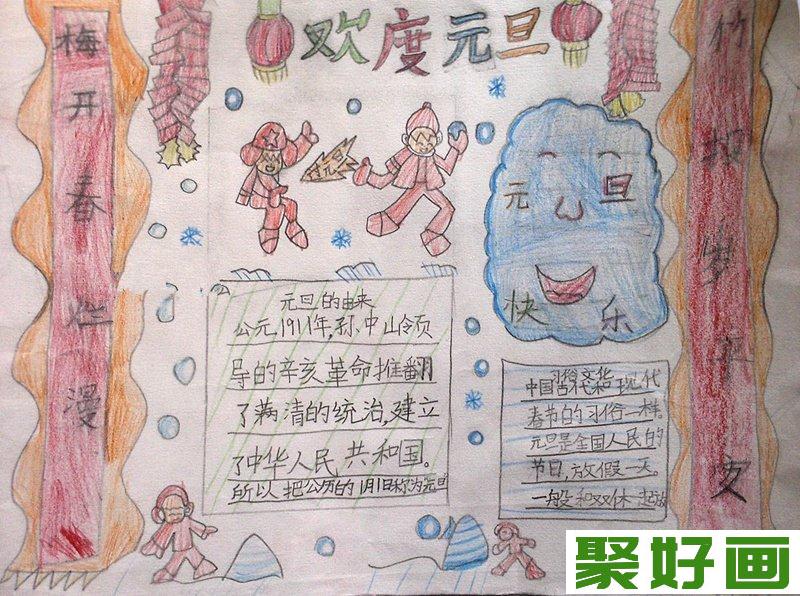 欢度元旦
梅开春烂漫
竹报岁平安
元旦
快乐
元旦的由来
公元,1911年,孙中山领
导的辛亥革命推翻
了满清的统治,建立
了中华人民共和国。
所以把公历的1月1日称为元旦
习俗文化
中国古代和现代
春节的习俗一样。
元旦是全国人民的
节日,放假一天。
一般和双休 起放
聚好画